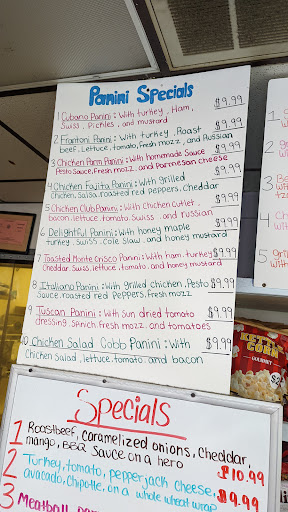 Panini Specials
1 Cubano Panini: With turkey, Ham, $9.99
Swiss, Pickles, and mustard
2 Frantoni Panini: With turkey, Roast $9.99
beef, lettuce, tomato, fresh mozz, and Russian
3 Chicken Parm Panini: With homemade Sauce $9.99
Pesto Sauce, Fresh mozz, and Parmesan cheese
4 Chicken Fajita Panini: With grilled $9.99
Chicken, Salsa, roasted red peppers, cheddar
5 Chicken Club Panini: With Chicken Cutlet, $9.99
bacon, lettuce, tomato, Swiss, and russian
6 Delightful Panini: With honey maple $9.99
turkey, Swiss, Cole Slaw, and honey mustard
7 Toasted Monte Cristo Panini: With ham, turkey $9.99
Cheddar, Swiss, lettuce, tomato, and honey mustard
8 Italiano Panini: With grilled chicken, Pesto $9.99
Sauce, roasted red Peppers, fresh mozz
9 Tuscan Panini: With Sun dried tomato $9.99
dressing, Spinich, fresh mozz, and tomatoes
10 Chicken Salad Cobb Panini: With $9.99
Chicken Salad, lettuce, tomato, and bacon
KETTLE
CORN
GOURMET
Specials
1 Roastbeef, caramelized onions, cheddar,
mango, BBQ Sauce on a hero $10.99
2 Turkey, tomato, pepperjack cheese,
avacado, Chipotle, on a whole wheat wrap $9.99
3 Meatball